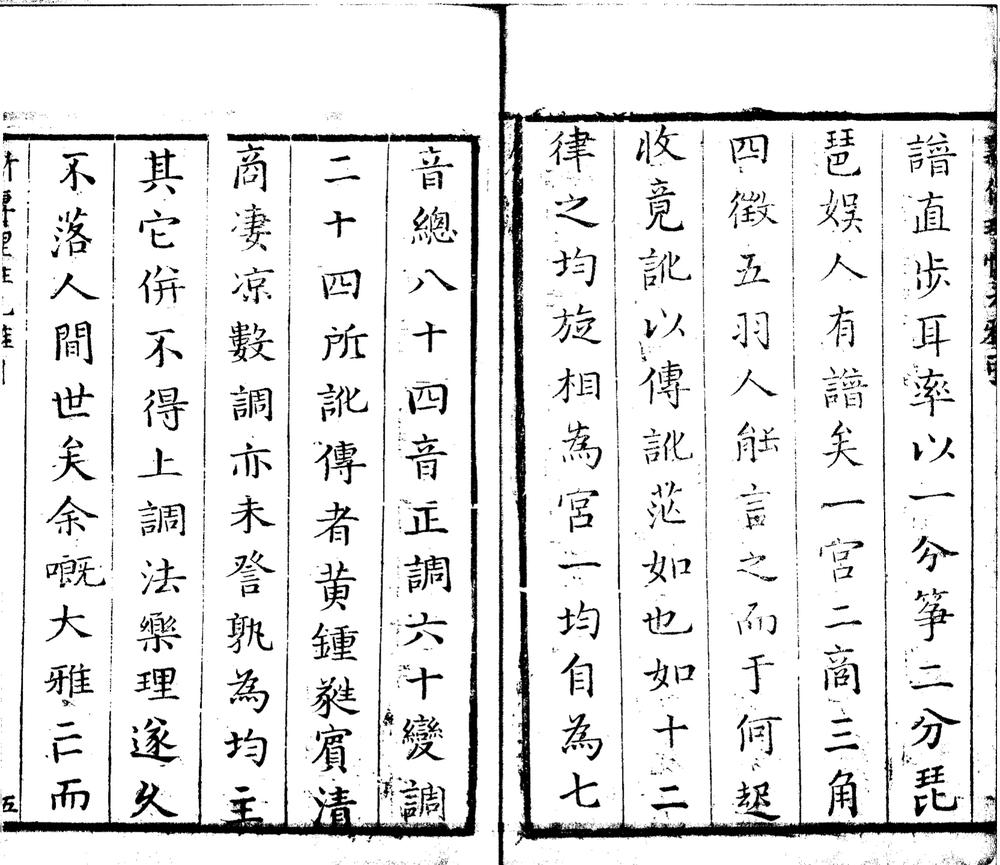 譜直步耳率以一分箏二分琵
琶娛人有譜矣一宮二商三角
四徵五羽人能言之而于何起
收竟訛以傳訛茫如也如十二
律之均旋相為宮一均自為七
音總八十四音正調六十變調
二十四所訛傳者黃鍾蕤賓清
商凄凉數調亦未詧孰為均主
其它併不得上調法樂理遂久
不落人間世矣余嘅大雅亡而
五